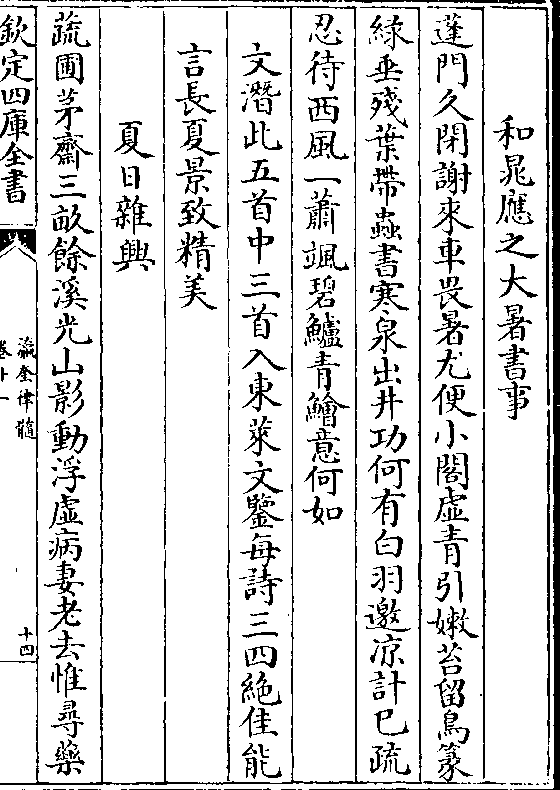 和晁應之大暑書事
蓬門久閉謝來車畏暑尤便小閣虛青引嫩苔留鳥篆
綠垂殘葉帶蟲書寒泉出井功何有白羽邀凉計已疏
忍待西風一蕭颯碧鱸青鱠意何如
文潛此五首中三首入東萊文鑒每詩三四絶佳能
言長夏景致精美
夏日雜興
蔬圃茅齋三畝餘溪光山影動浮虛病妻老去惟尋藥
欽定四庫全書
瀛奎律髓
卷十一
十四